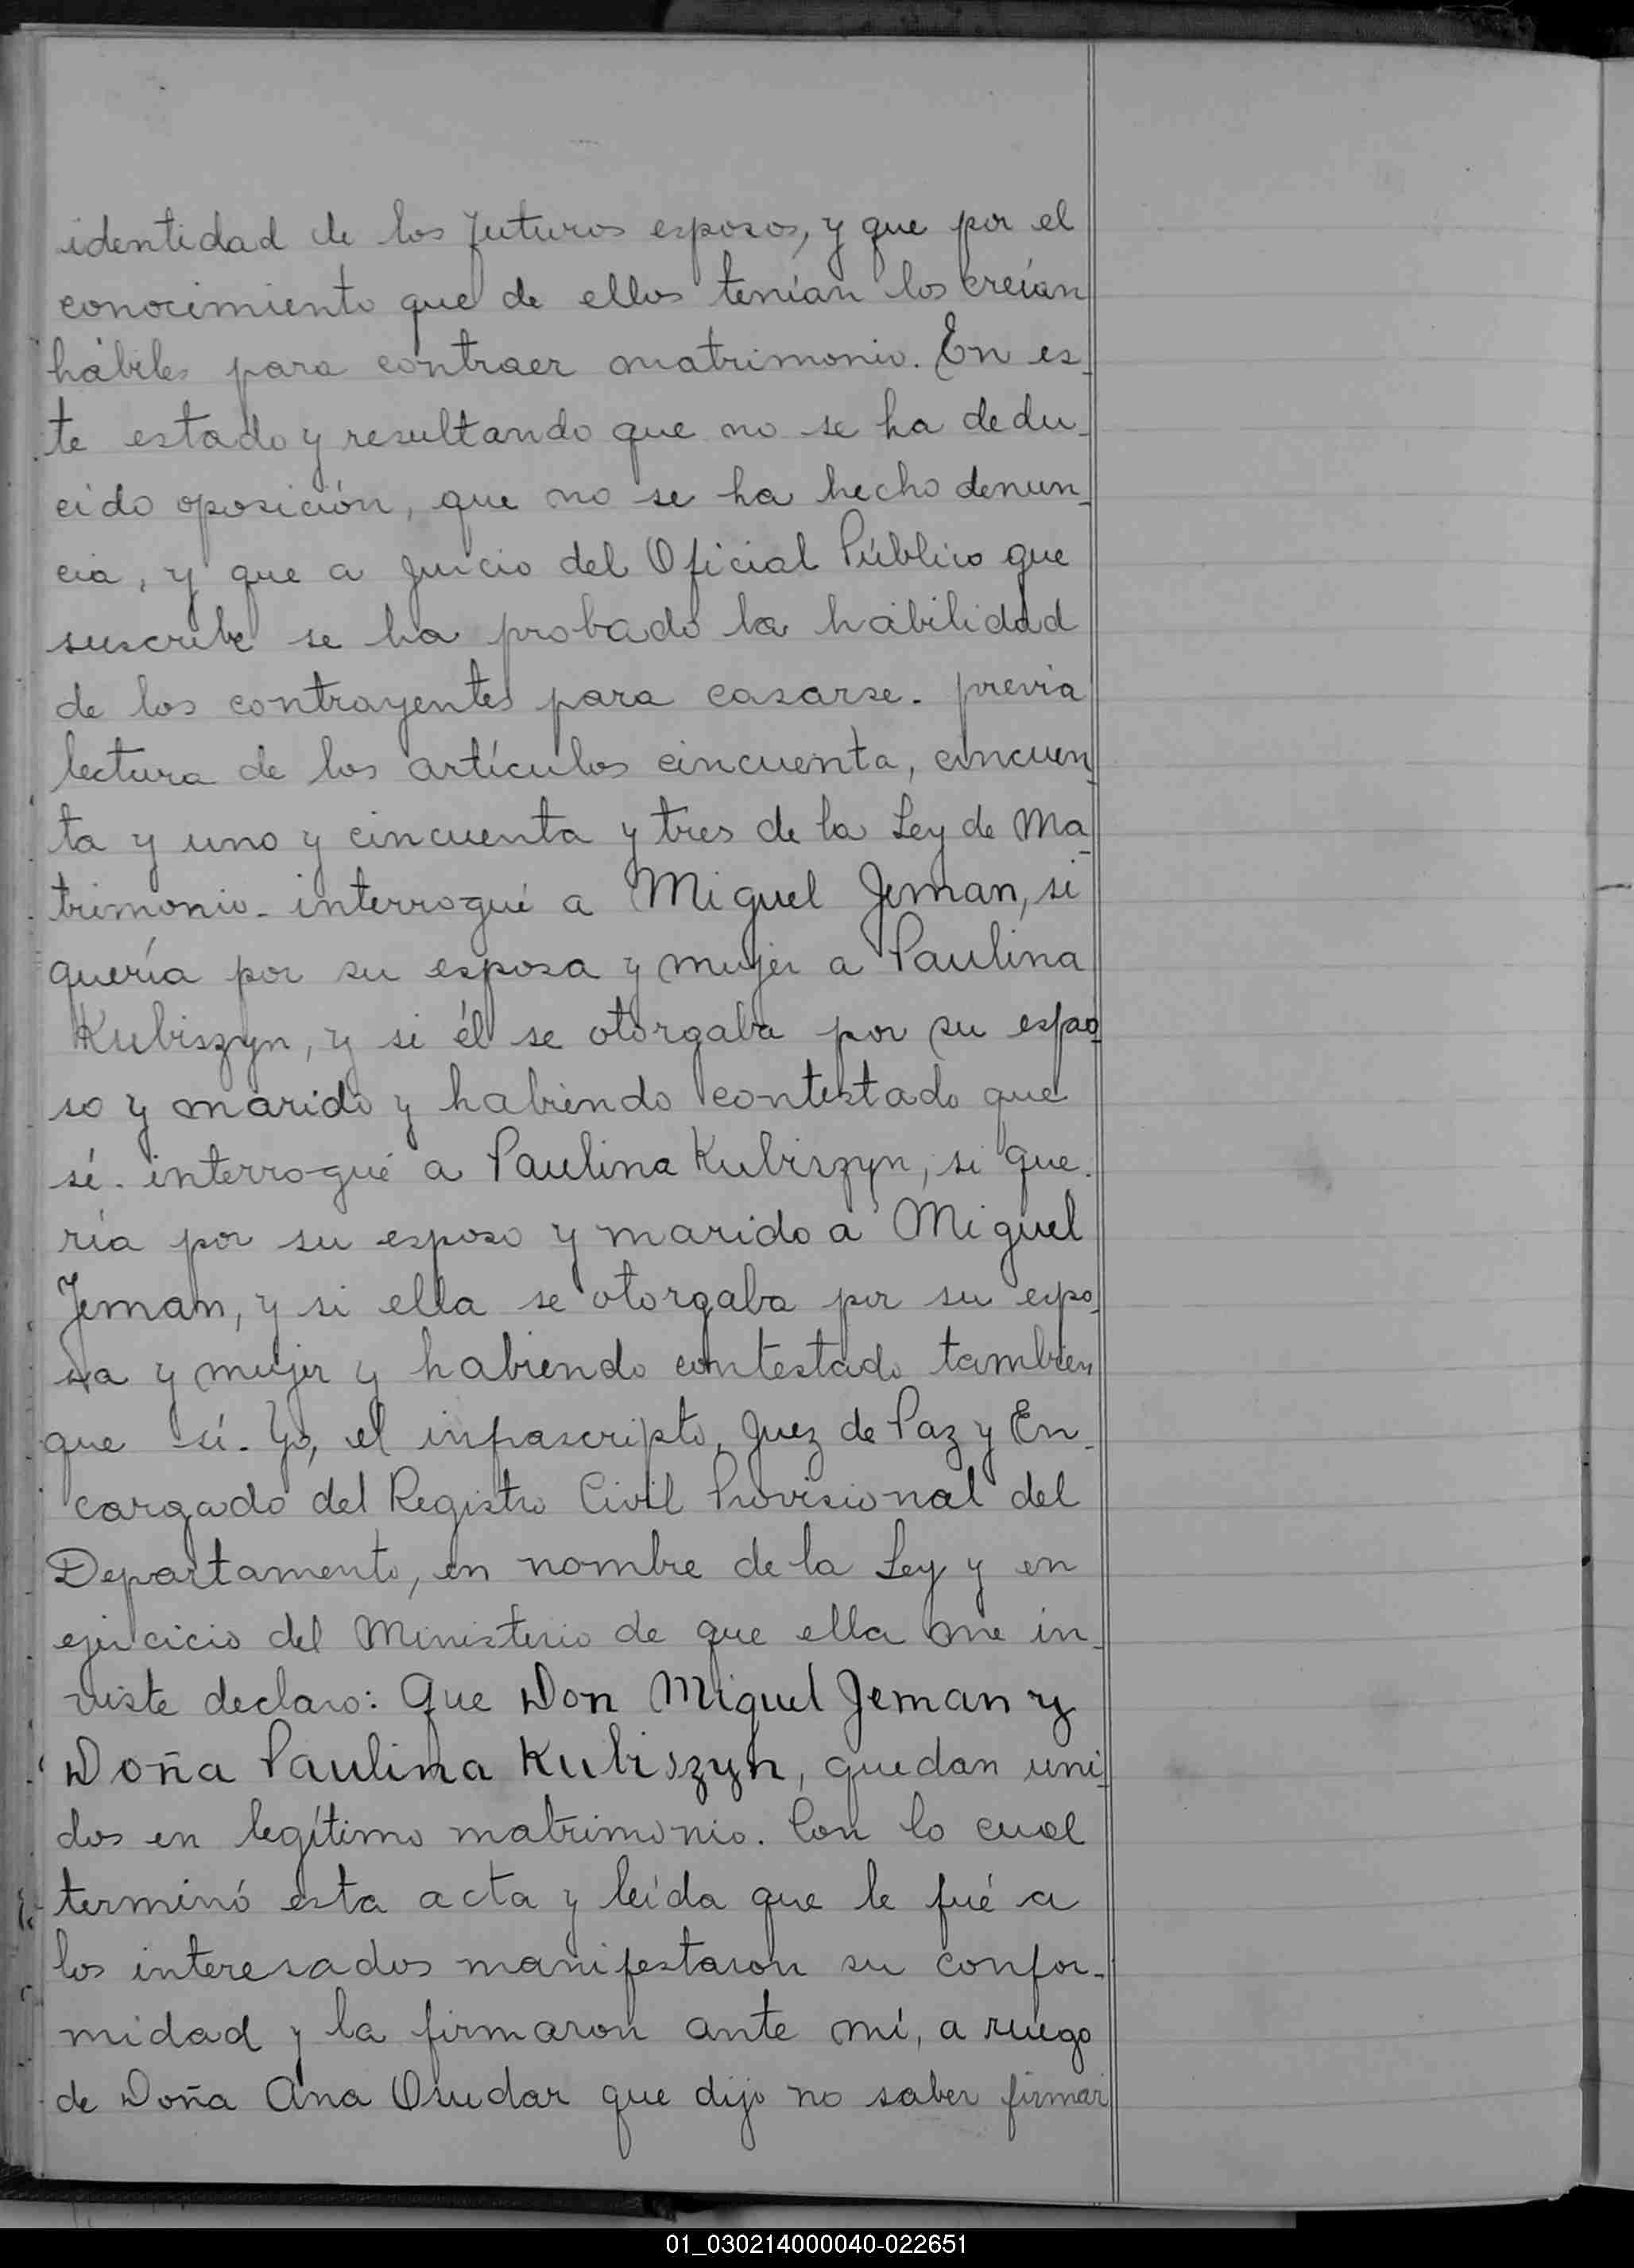 identidad de los futuros esposos, y que por el
conocimiento que de ellos tenían los creían
hábiles para contraer matrimonio. En es_
te estado y resultando que no se ha dedu_
cido oposición, que no se ha hecho denun_
cia, y que a juicio del Oficial Público que
suscribe se ha probado la habilidad
de los contrayentes para casarse. previa
lectura de los artículos cincuenta, cincuen_
ta y uno y cincuenta y tres de la Ley de Ma_
trimonio. interrogué a Miguel Jeman, si
quería por su esposa y mujer a Paulina
Kubiszyn, y si él se otorgaba por su espo_
so y marido y habiendo contestado que
sí. interrogué a Paulina Kubiszyn, si que_
ría por su esposo y marido a Miguel
Jeman, y si ella se otorgaba por su espo_
sa y mujer y habiendo contestado tambien
que sí. Yo, el infrascripto, Juez de Paz y En_
cargado del Registro Civil Provisional del
Departamento, en nombre de la Ley y en
ejercicio del Ministerio de que ella me in_
viste declaro: Que Don Miguel Jeman y
Doña Paulina Kubiszyn, quedan uni_
dos en legítimo matrimonio. Con lo cual
terminó esta acta y leída que le fué a
los interesados manifestaron su confor_
midad y la firmaron ante mí, a ruego
de Doña Ana Osudar que dijo no saber firmar
01_030214000040-022651